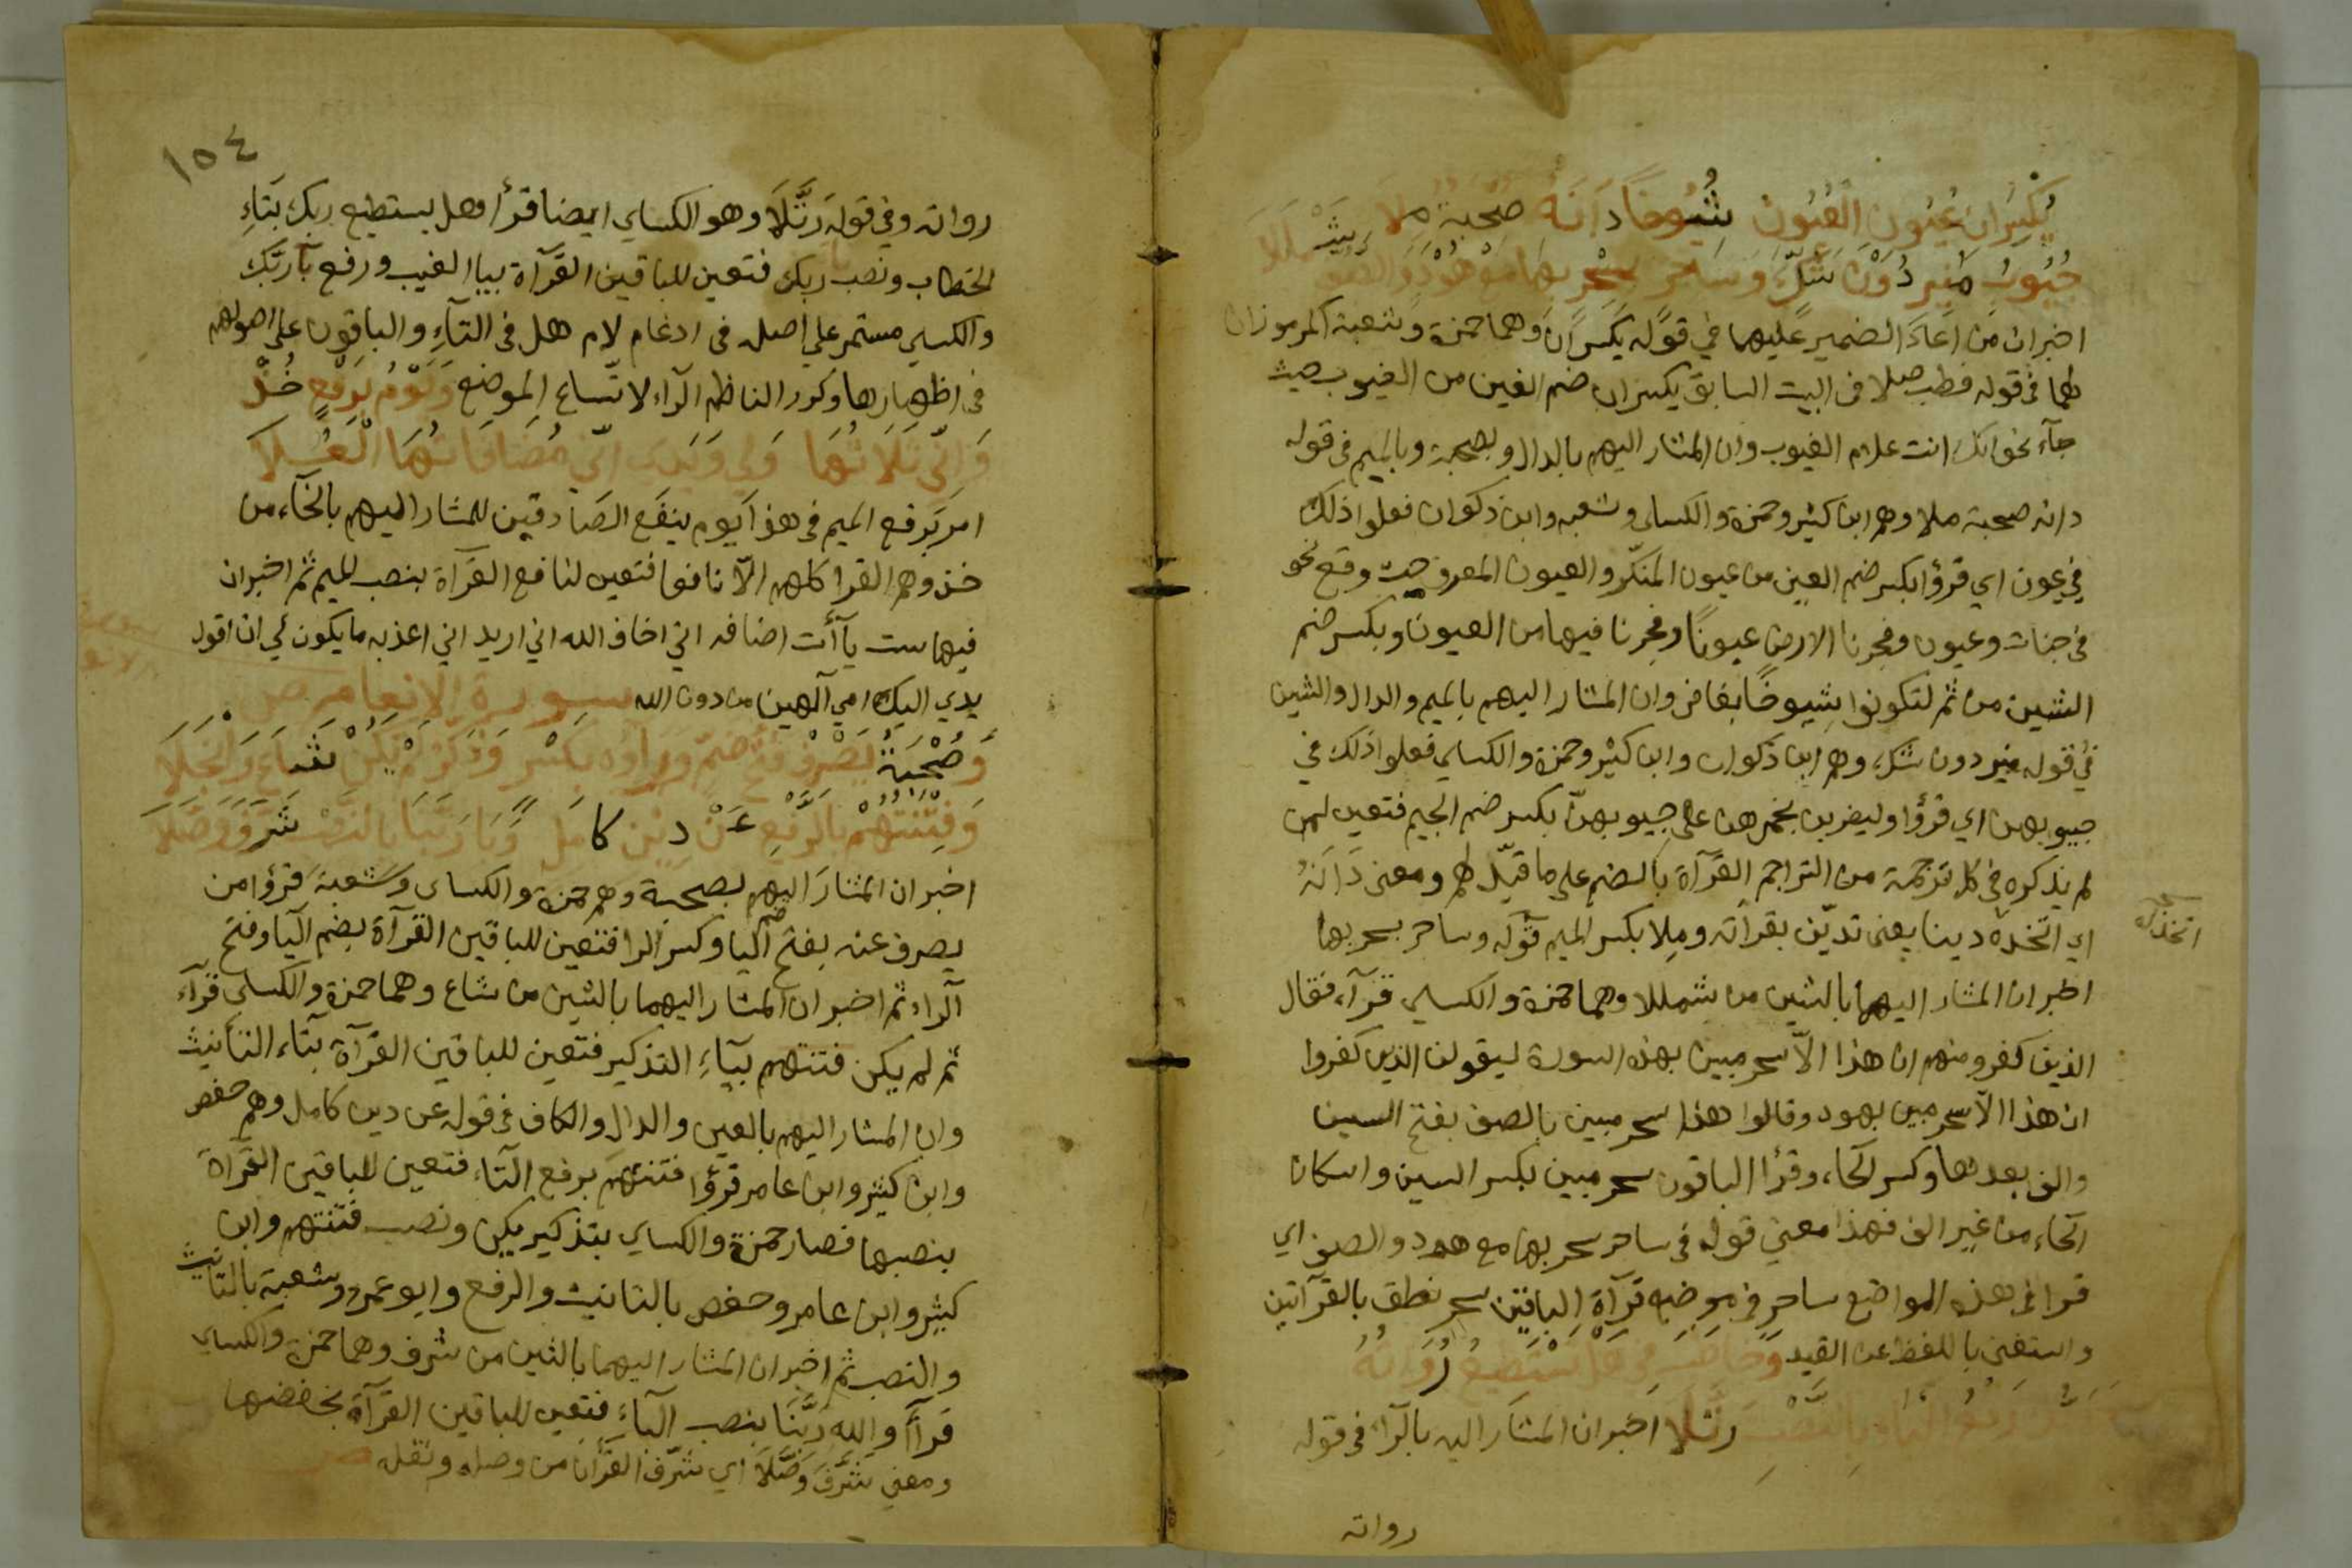 يكسران عيون العيون شيوخا دانه صحبة ملا
جيوب منير دون شك وساحر بسحر بها مع هود والصف شمللا
اخبران من اعاد الضمير عليهما في قوله يكسران وهما حمزة وشعبة المرموزان
لهما في قوله فطب صلا في البيت السابق يكسران ضم الغين من الغيوب حيث
جآء نحو انك انت علام الغيوب وان المشار اليهم بالدال وبصحبة وبالميم في قوله
دانه صحبة ملا وهم ابن كثير وحمزة والكساى وشعبه وابن ذكوان فعلوا ذلك
في عيون اي قرؤا بكسر ضم العين من عيون المنكر والعيون المعرو حيث وقع نحو
في جنات وعيون وفجرنا الارض عيونًا وفجرنا فيها من العيون وبكسر ضم
الشين من ثم لتكونوا شيوخًا بغافر وان المشار اليهم بالميم والدال والشين
في قوله منير دون شك، وهم ابن ذكوان وابن كثير وحمزة والكساي فعلوا ذلك في
جيوبهن اي قرؤا وليضربن بخمرهن على جيوبهن بكسر ضم الجيم فتعين لمن
لم يذكره في كل ترجمة من التراجم القرآة بالضم على ما قيّل لهم ومعنى دانه
اي اتخذه دينا يعنى تديّن بقرآته وملا بكسر الميم قوله وساحر بسحر بها
اتخذه
اخبر ان المشار اليهما بالشين من شمللا وهما حمزة والكساي قرآء فقال
الذين كفرو منهم ان هذا الاّ سحر مبين بهذه السورة ليقولن الذين كفروا
ان هذا الا سحر مبين بهود وقالوا هذا سحر مبين بالصف بفتح السين
والف بعدها وكسر الحاء، وقرأ الباقون سحر مبين بكسر السين واسكان
الحاء من غير الف فهذا معنى قوله في ساحر سحر بها مع هود والصف اي
قرا في هذه المواضع ساحر في موضع قرآة الباقين سحر نطق بالقرآتين
واستغنى باللفظ عن القيد وخاطب في هل تستطيع رواته
وربك رفع الباء بالنصب رتلا اخبر ان المشار اليه بالرآء في قوله
رواته
١٥٤
رواته وفي قوله رَتَّلَا وهو الكساي ايضا قرأ هل يستطيع ربك بتاءِ
الخطاب ونصب ربك فتعين للباقين القرآة بيا الغيب ورفع بآ ربّك
والكساي مستمر على اصله في ادغام لام هل في التآءِ والباقون على اصولهم
في اظهارها وكرر الناظم الرآء لاتساع الموضع ويوم برفع خذ
واني ثلاثها ولي ويدي اني مضافاتها العلا
امر برفع الميم في هذا يوم ينفع الصادقين للمشار اليهم بالخآء من
خذ وهم القرا كلهم الاّ نافعا فتعين لنافع القرآة بنصب الميم ثم اخبر ان
فيها ست يآأت اضافه اني اخاف الله اني اريد اني اعذبه ما يكون لي ان اقول
يدي اليك امي آلهين من دون الله سورة الانعام
وصحبة يصرف فتح ضم وراؤه بكسر وذكر لم يكن شاع وانجلا
وفتنتهم بالرفع عن دين كامل وبا ربنا بالنصب شرف وصلا
اخبر ان المشار اليهم بصحبة وهم حمزة والكساى وشعبة قرؤا من
يصرف عنه بفتح ضم اليا وكسر الرا فتعين للباقين القرآة بضم اليا وفتح
الراء ثم اخبر ان المشار اليهما بالشين من شاع وهما حمزة والكساى قرآء
ثم لم يكن فتنتهم بيآءِ التذكير فتعين للباقين القرآة بتاء التأنيث
وان المشار اليهم بالعين والدال والكاف في قوله عن دين كامل وهم حفص
وابن كثير وابن عامر قرؤا فتنتهم برفع التآء، فتعين للباقين القرآة
بنصبها فصار حمزة والكساي بتذكير يكن ونصب فتنتهم وابن
كثير وابن عامر وحفص بالتانيث والرفع وابو عمرو وشعبة بالتانيث
والنصب ثم اخبر ان المشار اليهما بالشين من شرف وهما حمزة والكساي
قرآ والله رَبَّنَا بنصب البآءِ فتعين للباقين القرآة بخفضها
ومعنى شَرَّفَ وَصَّلَا اي شرّف القرآن من وصله ونقله